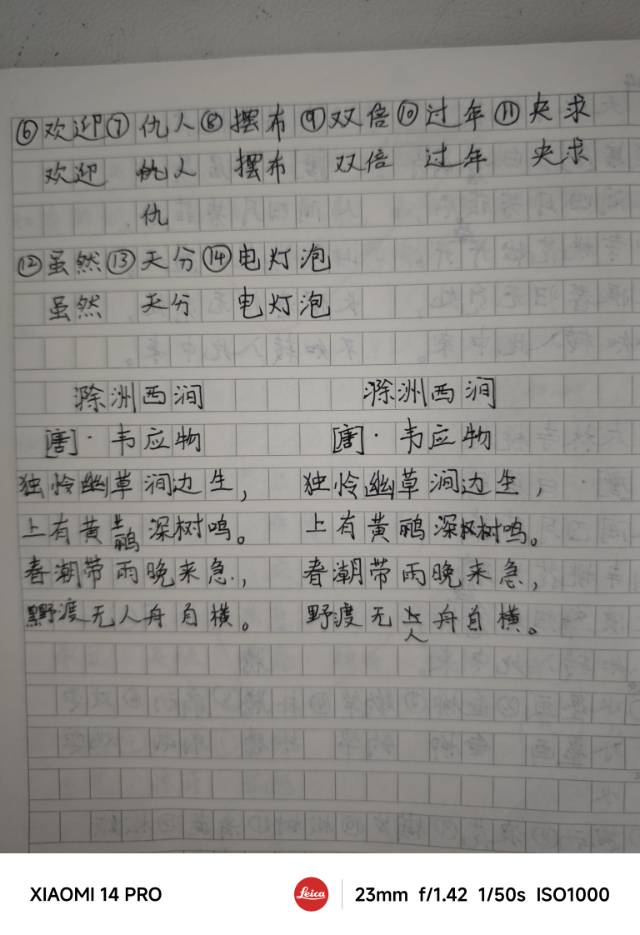 ⑥欢迎⑦仇人⑧摆布⑨双倍⑩过年⑪央求
欢迎 仇人 摆布 双倍 过年 央求
仇
⑫虽然⑬天分⑭电灯泡
虽然 天分 电灯泡
滁洲西涧 滁洲西涧
[唐]·韦应物 [唐]·韦应物
独怜幽草涧边生, 独怜幽草涧边生,
上有黄鹂深树鸣。 上有黄鹂深树鸣。
春潮带雨晚来急, 春潮带雨晚来急,
野渡无人舟自横。 野渡无人舟自横。
XIAOMI 14 PRO Leica 23mm f/1.42 1/50s ISO1000